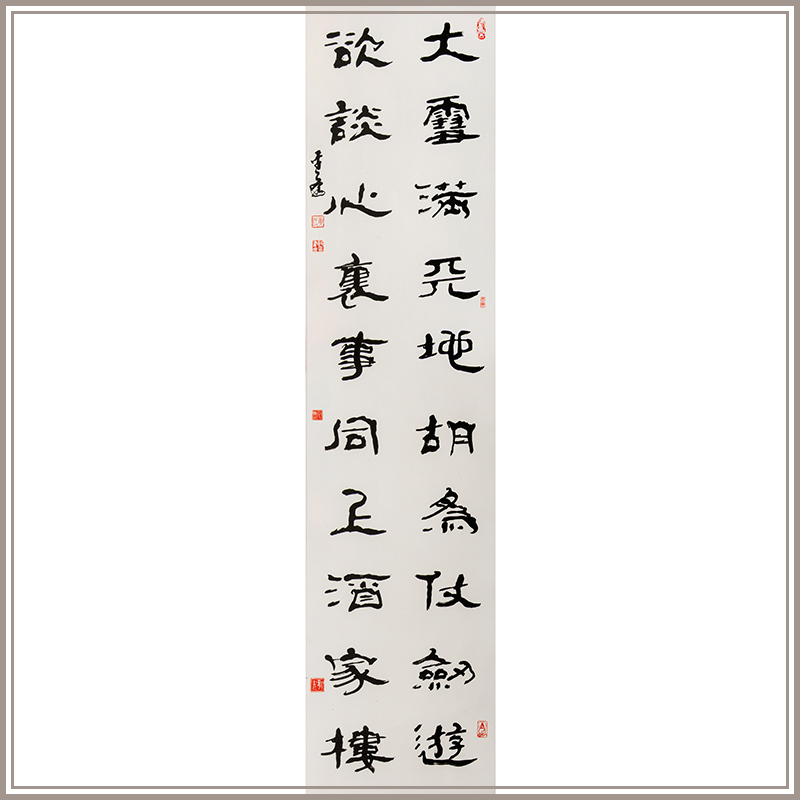 大雪滿天地胡為仗劍遊
欲談心裏事同上酒家樓